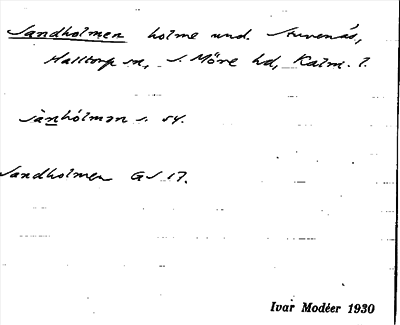 Sandholmen holme und. Stuvenäs,
Halltorp sn, S. Möre hd, Kalm. l.
sànhólmən s. 54.
Sandholmen GS 17.
Ivar Modéer 1930